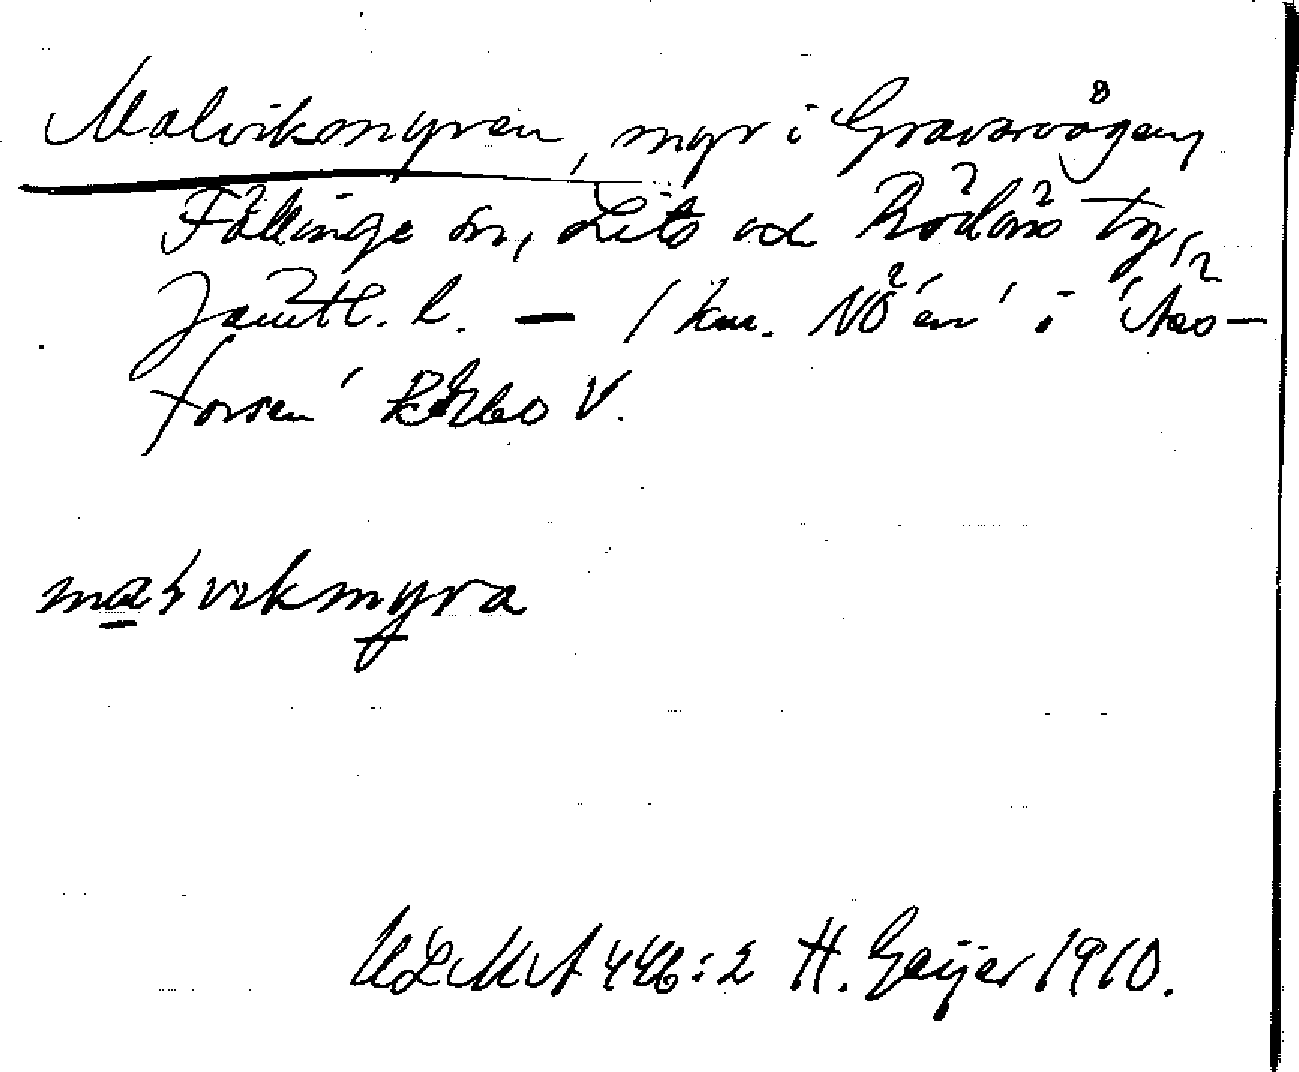 Malvikmyren, myr i Gravarvågen,
Föllinge sn, Lits och Rödöns tg,
Jämtl. l. – 1 km. NÖ 'en' i 'Ås-
forsen' Bl V.
maɫvikmyra
ULMA 446:2 H. Geijer 1910.